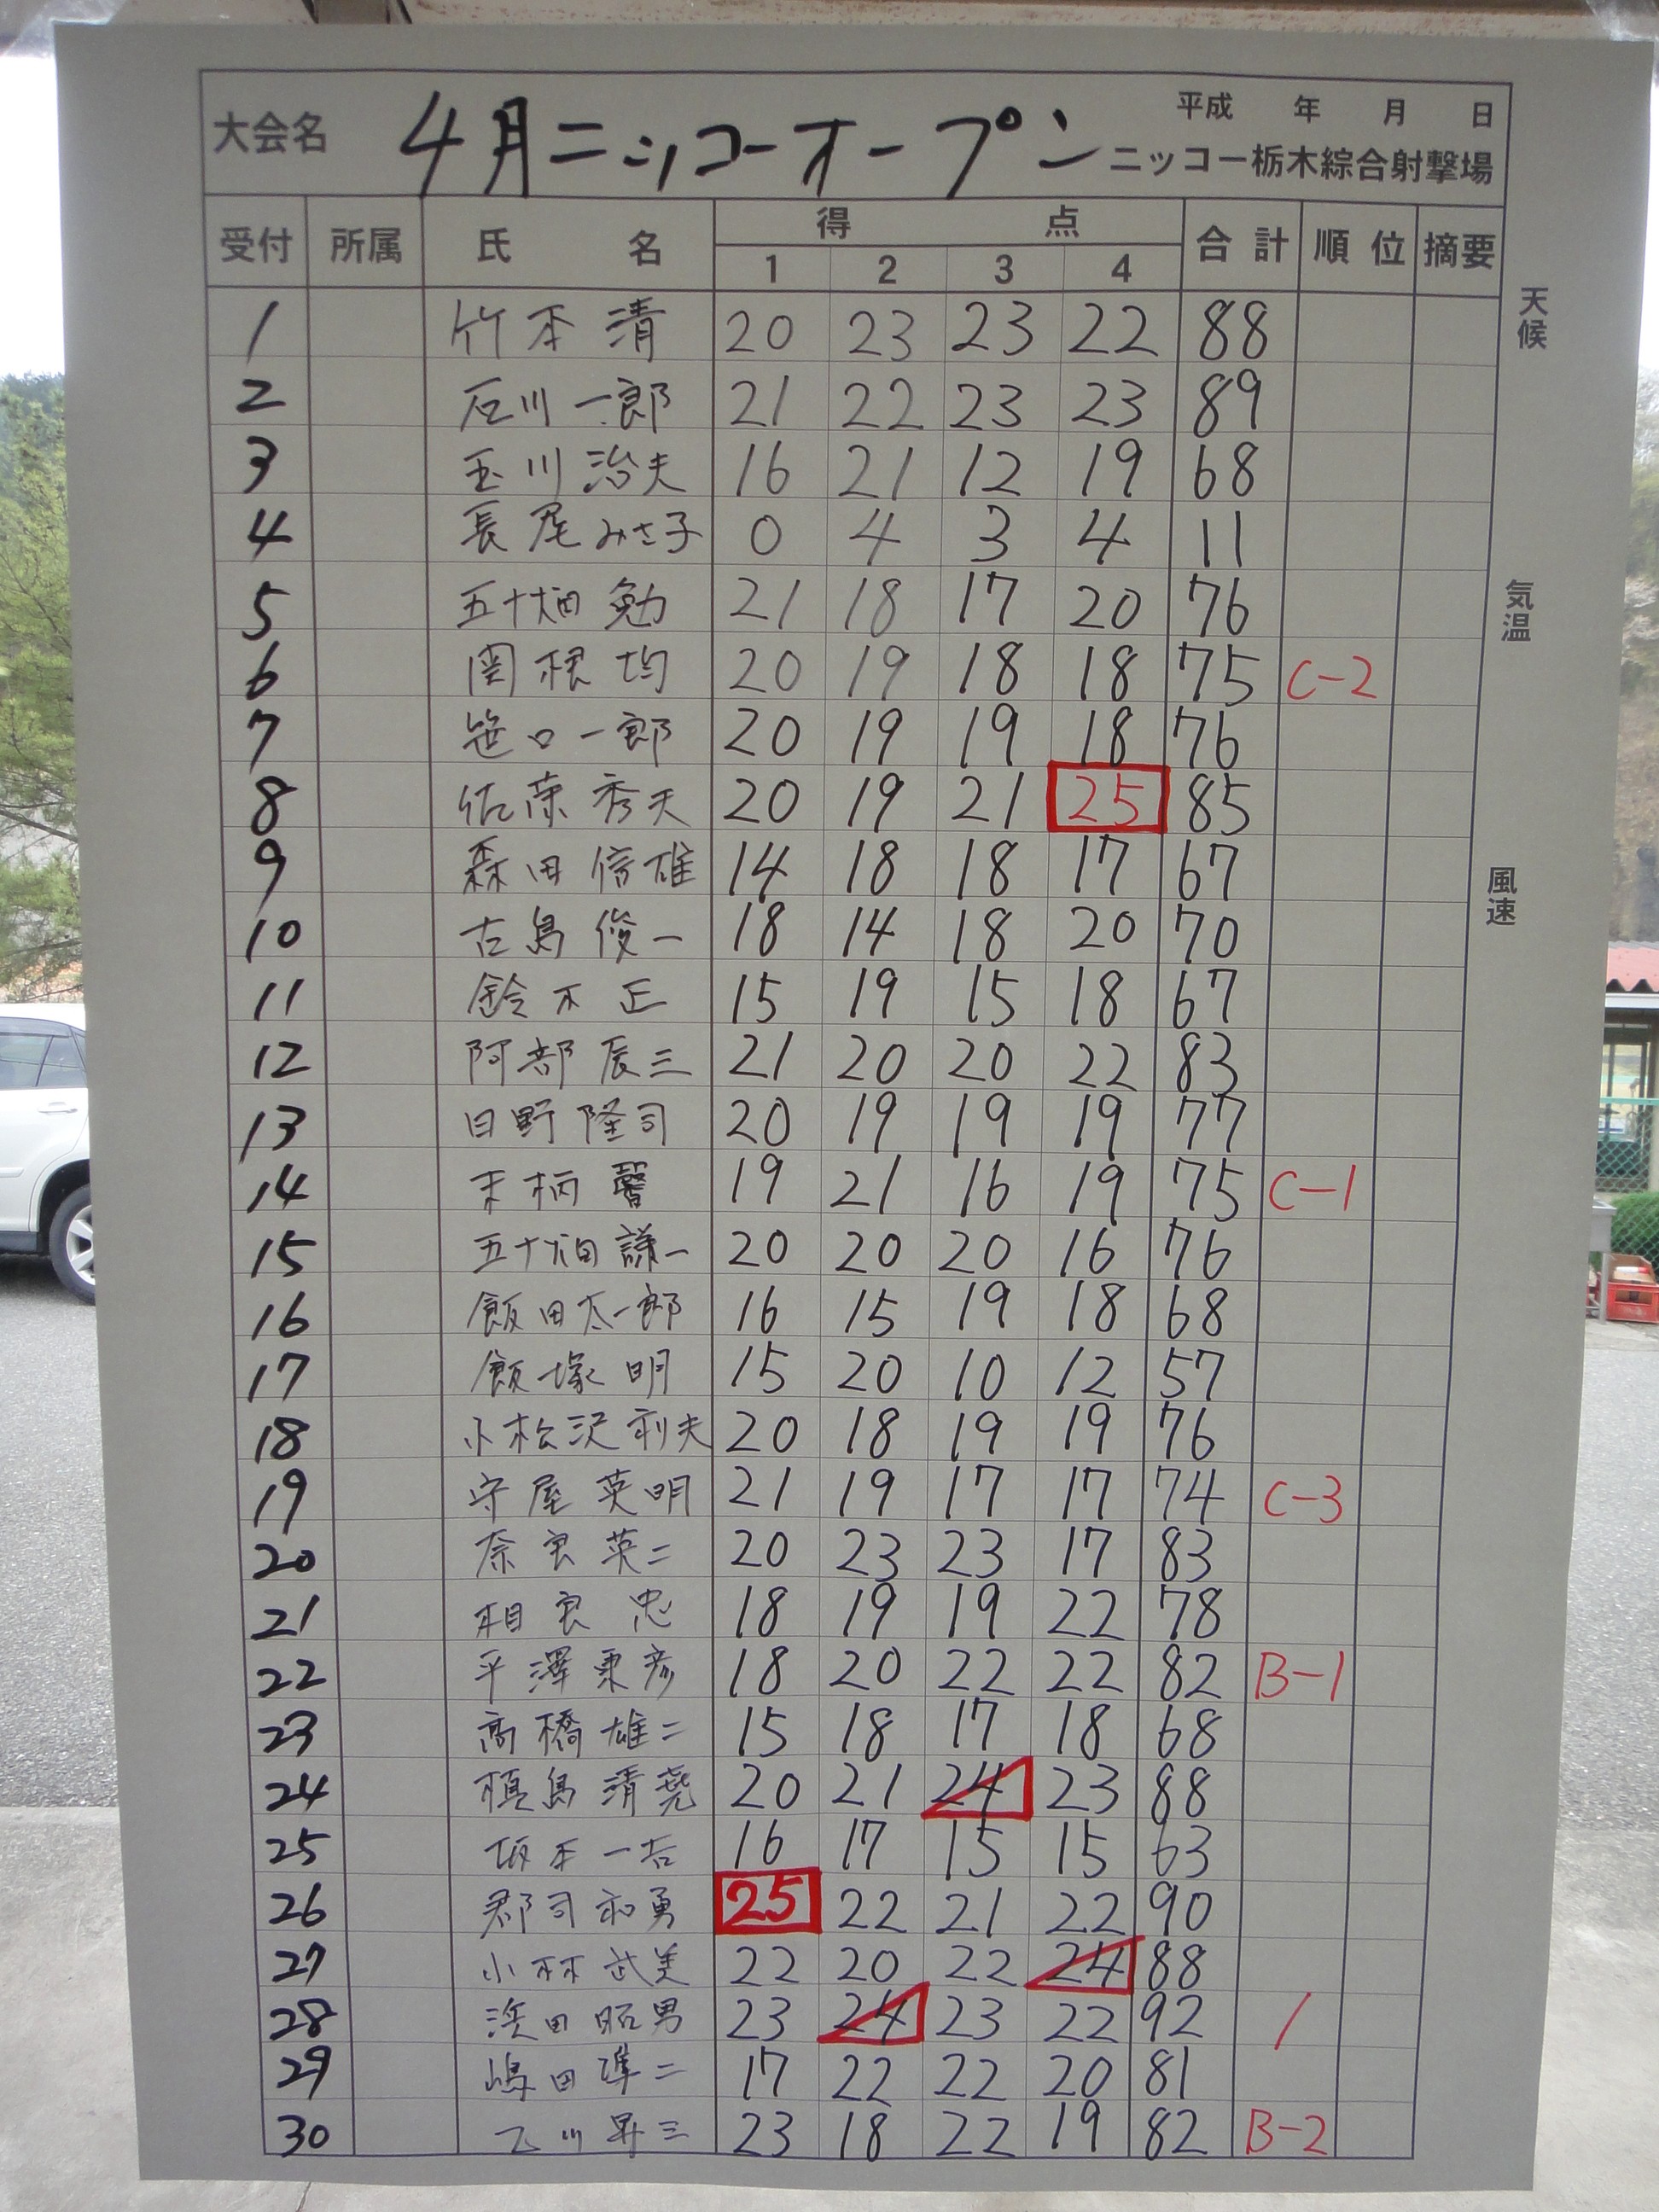 大会名 4月ニッコーオープン 平成 年 月 日
ニッコー栃木綜合射撃場
受付 所属 氏 名 得 点 合計 順位 摘要
1 2 3 4
1 竹本 清 20 23 23 22 88
2 石川 一郎 21 22 23 23 89
3 玉川 治夫 16 21 12 19 68
4 長尾 みさ子 0 4 3 4 11
5 五十畑 勉 21 18 17 20 76
6 関根 均 20 19 18 18 75 C-2
7 笹口 一郎 20 19 19 18 76
8 佐藤 秀夫 20 19 21 25 85
9 森田 信雄 14 18 18 17 67
10 古島 俊一 18 14 18 20 70
11 鈴木 正 15 19 15 18 67
12 阿部 辰三 21 20 20 22 83
13 日野 隆司 20 19 19 19 77
14 末柄 馨 19 21 16 19 75 C-1
15 五十畑 謙一 20 20 20 16 76
16 飯田 太一郎 16 15 19 18 68
17 飯塚 明 15 20 10 12 57
18 小松沢 利夫 20 18 19 19 76
19 守屋 英明 21 19 17 17 74 C-3
20 奈良 英二 20 23 23 17 83
21 相良 忠 18 19 19 22 78
22 平澤 秉彦 18 20 22 22 82 B-1
23 高橋 雄二 15 18 17 18 68
24 槙島 清堯 20 21 24 23 88
25 坂本 一吉 16 17 15 15 63
26 郡司 和勇 25 22 21 22 90
27 小林 武美 22 20 22 24 88
28 浜田 昭男 23 24 23 22 92 1
29 嶋田 準二 17 22 22 20 81
30 乙川 昇三 23 18 22 19 82 B-2
天候
気温
風速